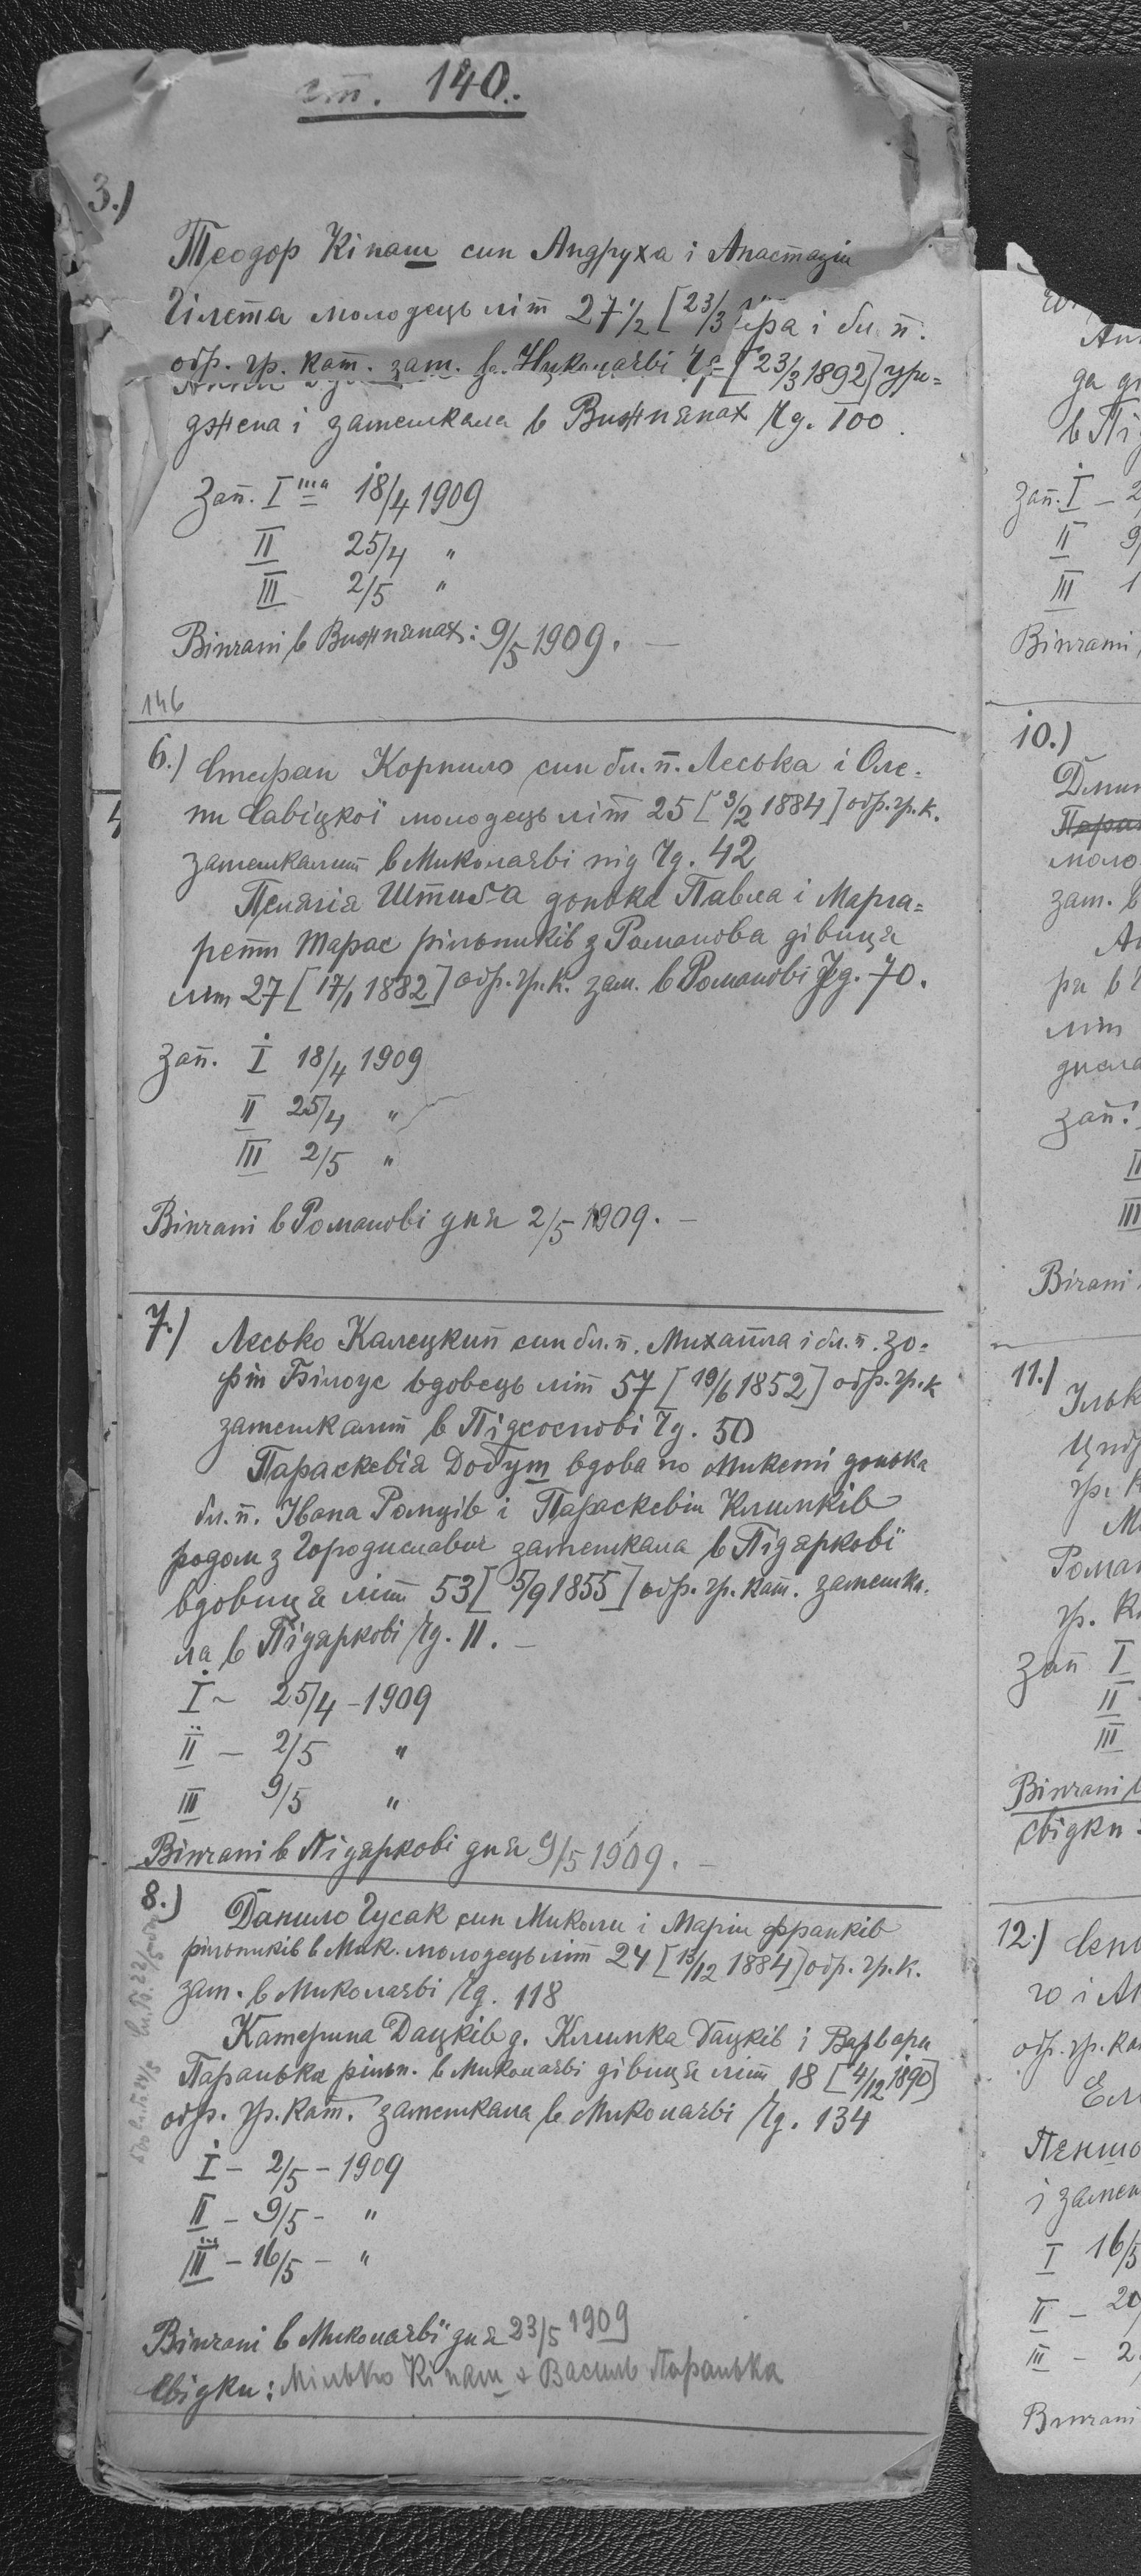 ст. 140.
3.)
Теодор Кіпаш син Андруха і Анастазіи
Гілета молодець літ 27 1/2 [23/3 ира і бл. п.
обр. гр. кат. зам. в Николаєві Чс= [23/3 1892] уро=
джена і замешкала в Вижнянах Чд. 100.
Зап. I ша 18/4 1909
II 25/4 "
III 2/5 "
Вінчані в Вижнянах: 9/5 1909. —
146
6.) Стефан Корпило син бл. п. Леська і Оле-
ни Савіцкої молодець літ 25 [3/2 1884] обр. гр. к.
замешкалий в Миколаєві під Чд. 42
Пелагія Штиба донька Павла і Марга=
рети Тарас рільників з Романова дівиця
літ 27 [17/1 1882] обр. гр. к. зам. в Романові Чд. 70.
Зап. I 18/4 1909
II 25/4 "
III 2/5 "
Вінчані в Романові дня 2/5 1909. —
7.) Лесько Калецкий син бл. п. Михайла і бл. п. Зо-
фії Білоус вдовець літ 57 [19/6 1852] обр. гр. к
замешкалий в Підсоснові Чд. 50
Параскевія Добуш вдова по Микеті донька
бл. п. Івана Ромців і Параскевіи Климків
родом з Городиславич замешкала в Підяркові
вдовиця літ 53 [5/9 1855] обр. гр. кат. замешка-
ла в Підяркові Чд. 11. —
I ~ 25/4 – 1909
II – 2/5 "
III 9/5 "
Вінчані в Підяркові дня 9/5 1909. —
8.) Данило Гусак син Миколи і Маріи Франків
рільників в Мик. молодець літ 24 [13/12 1884] обр. гр. к.
зам. в Миколаєві Чд. 118
Катерина Дацків д. Климка Дацків і Варвари
Паранька рільн. в Миколаєві дівиця літ 18 [4/12 1890]
обр. гр. кат. замешкала в Миколаєві Чд. 134
I – 2/5 – 1909
II – 9/5 – "
III – 16/5 – "
Вінчані в Миколаєві дня 23/5 1909
Свідки: Мілько Кіпаш + Василь Паранька
да
зап. I –
II 9/
III 1
Вінчані
10.)
моло
зам. в
літ
зап.
II
III
Вічані
11.)
Ільк
гр. к
Роман
гр. к
Зап I
II
III
Вінчані в
свідки:
12.)
го і Ан
обр. гр. ка
і замеш
I 16/5
II – 20
III – 2
Вінчані